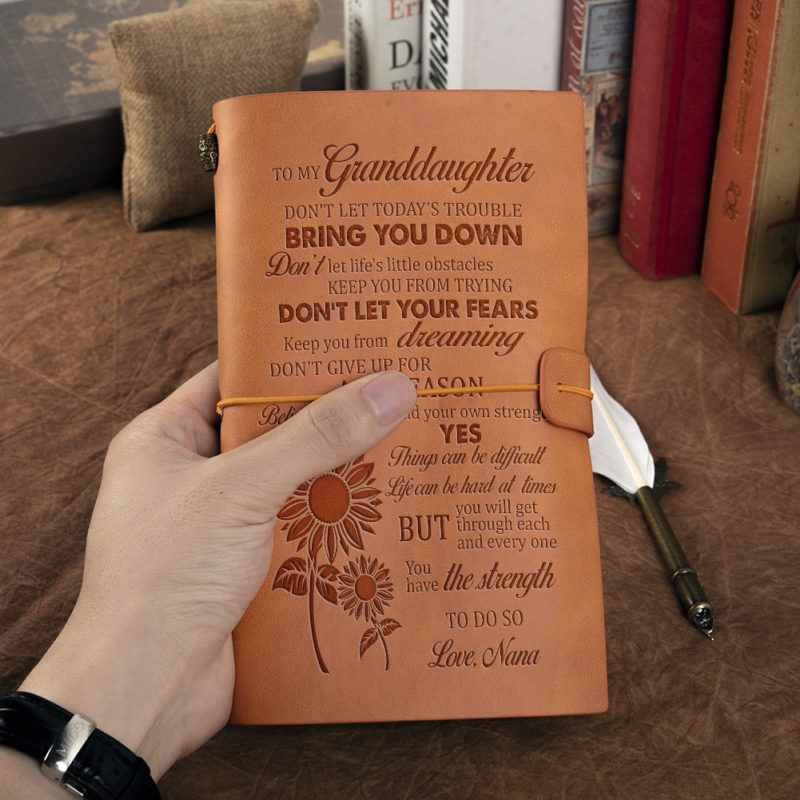 TO MY Granddaughter
DON'T LET TODAY'S TROUBLE
BRING YOU DOWN
Don't let life's little obstacles
KEEP YOU FROM TRYING
DON'T LET YOUR FEARS
Keep you from dreaming
DON'T GIVE UP FOR
your own
YES
Things can be difficult
Life can be hard at times
BUT you will get
through each
and every one
You
have the strength
TO DO SO
Love, Nana